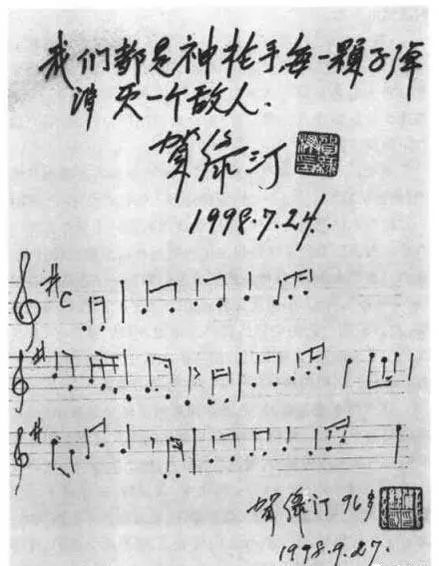 我们都是神枪手,每一颗子弹
消灭一个敌人.
贺绿汀
1998.7.24.
C
贺绿汀 96岁
1998.9.27.